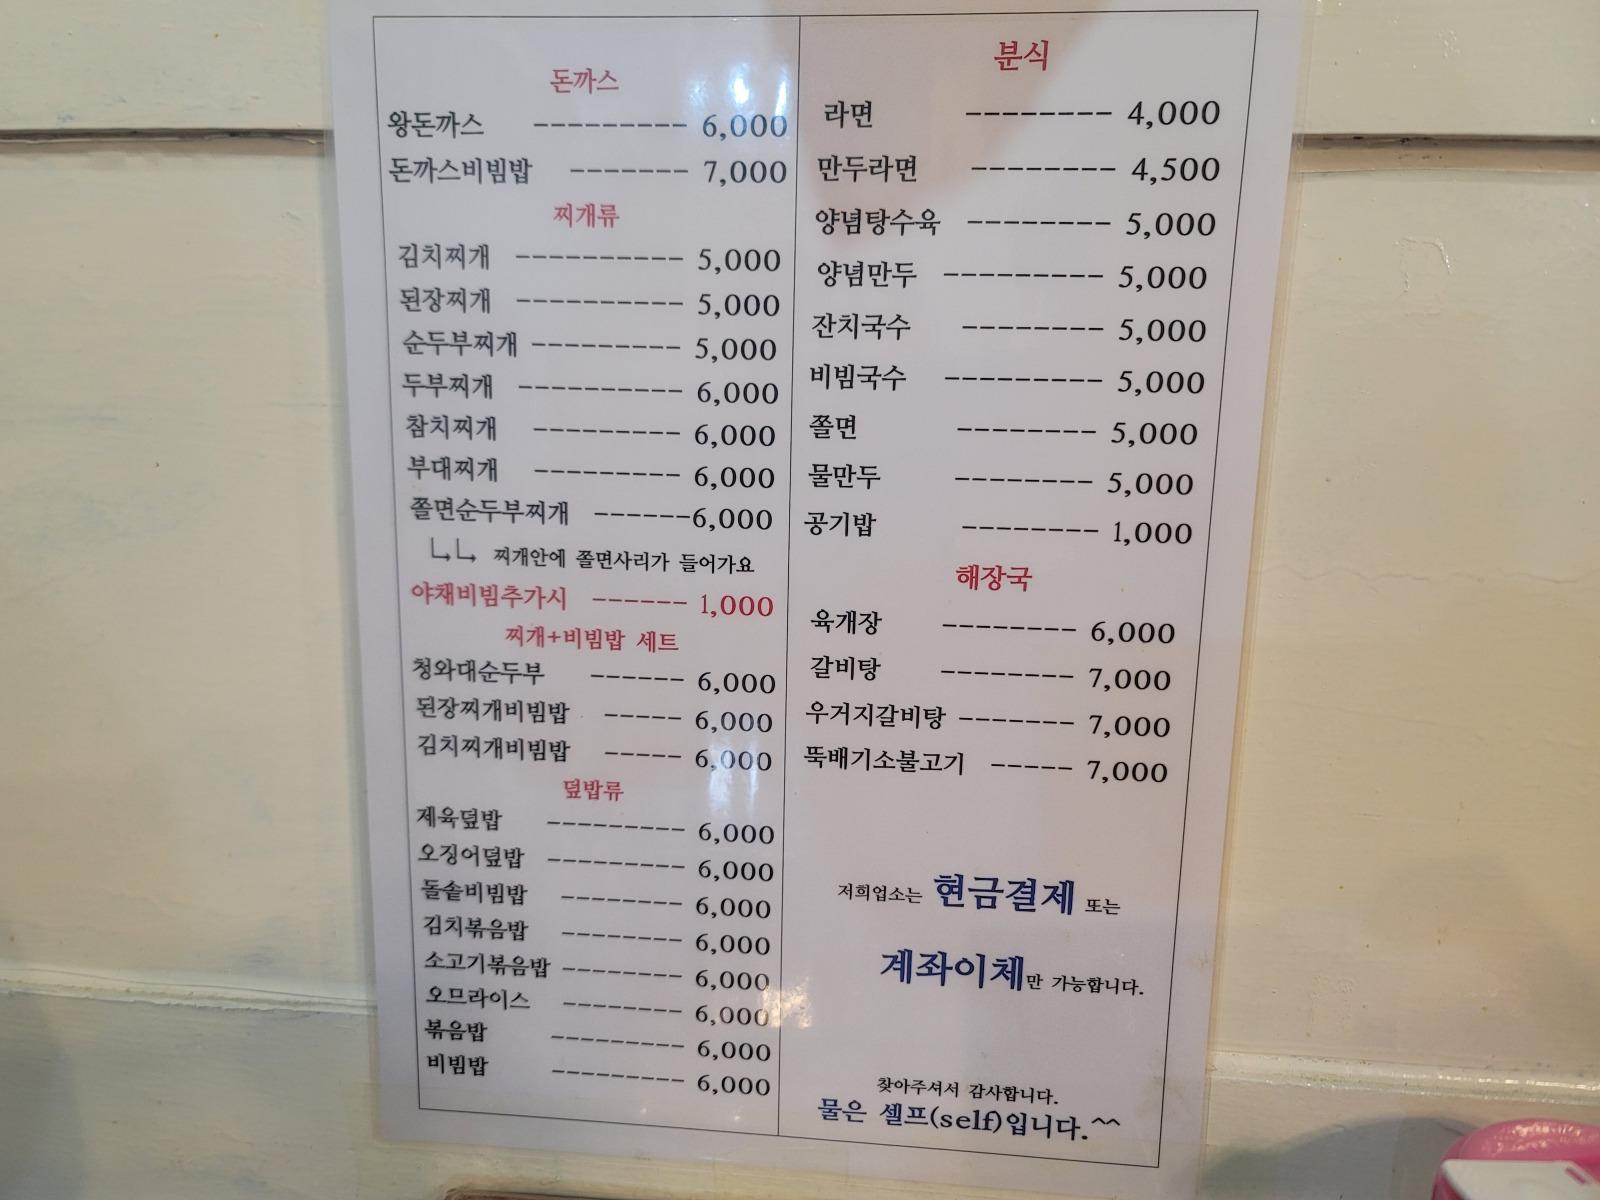 돈까스
왕돈까스 --------- 6,000
돈까스비빔밥 ------- 7,000
찌개류
김치찌개 ---------- 5,000
된장찌개 ---------- 5,000
순두부찌개 --------- 5,000
두부찌개 ---------- 6,000
참치찌개 --------- 6,000
부대찌개 --------- 6,000
쫄면순두부찌개 ------6,000
찌개안에 쫄면사리가 들어가요
야채비빔추가시 ------ 1,000
찌개+비빔밥 세트
청와대순두부 ------ 6,000
된장찌개비빔밥 ----- 6,000
김치찌개비빔밥 ----- 6,000
덮밥류
제육덮밥 --------- 6,000
오징어덮밥 --------- 6,000
돌솥비빔밥 -------- 6,000
김치볶음밥 -------- 6,000
소고기볶음밥 -------- 6,000
오므라이스 -------- 6,000
볶음밥 --------- 6,000
비빔밥 --------- 6,000
분식
라면 -------- 4,000
만두라면 -------- 4,500
양념탕수육 -------- 5,000
양념만두 --------- 5,000
잔치국수 -------- 5,000
비빔국수 --------- 5,000
쫄면 -------- 5,000
물만두 -------- 5,000
공기밥 -------- 1,000
해장국
육개장 -------- 6,000
갈비탕 -------- 7,000
우거지갈비탕 ------- 7,000
뚝배기소불고기 ----- 7,000
저희업소는 현금결제 또는
계좌이체만 가능합니다.
찾아주셔서 감사합니다.
물은 셀프(self)입니다.^^